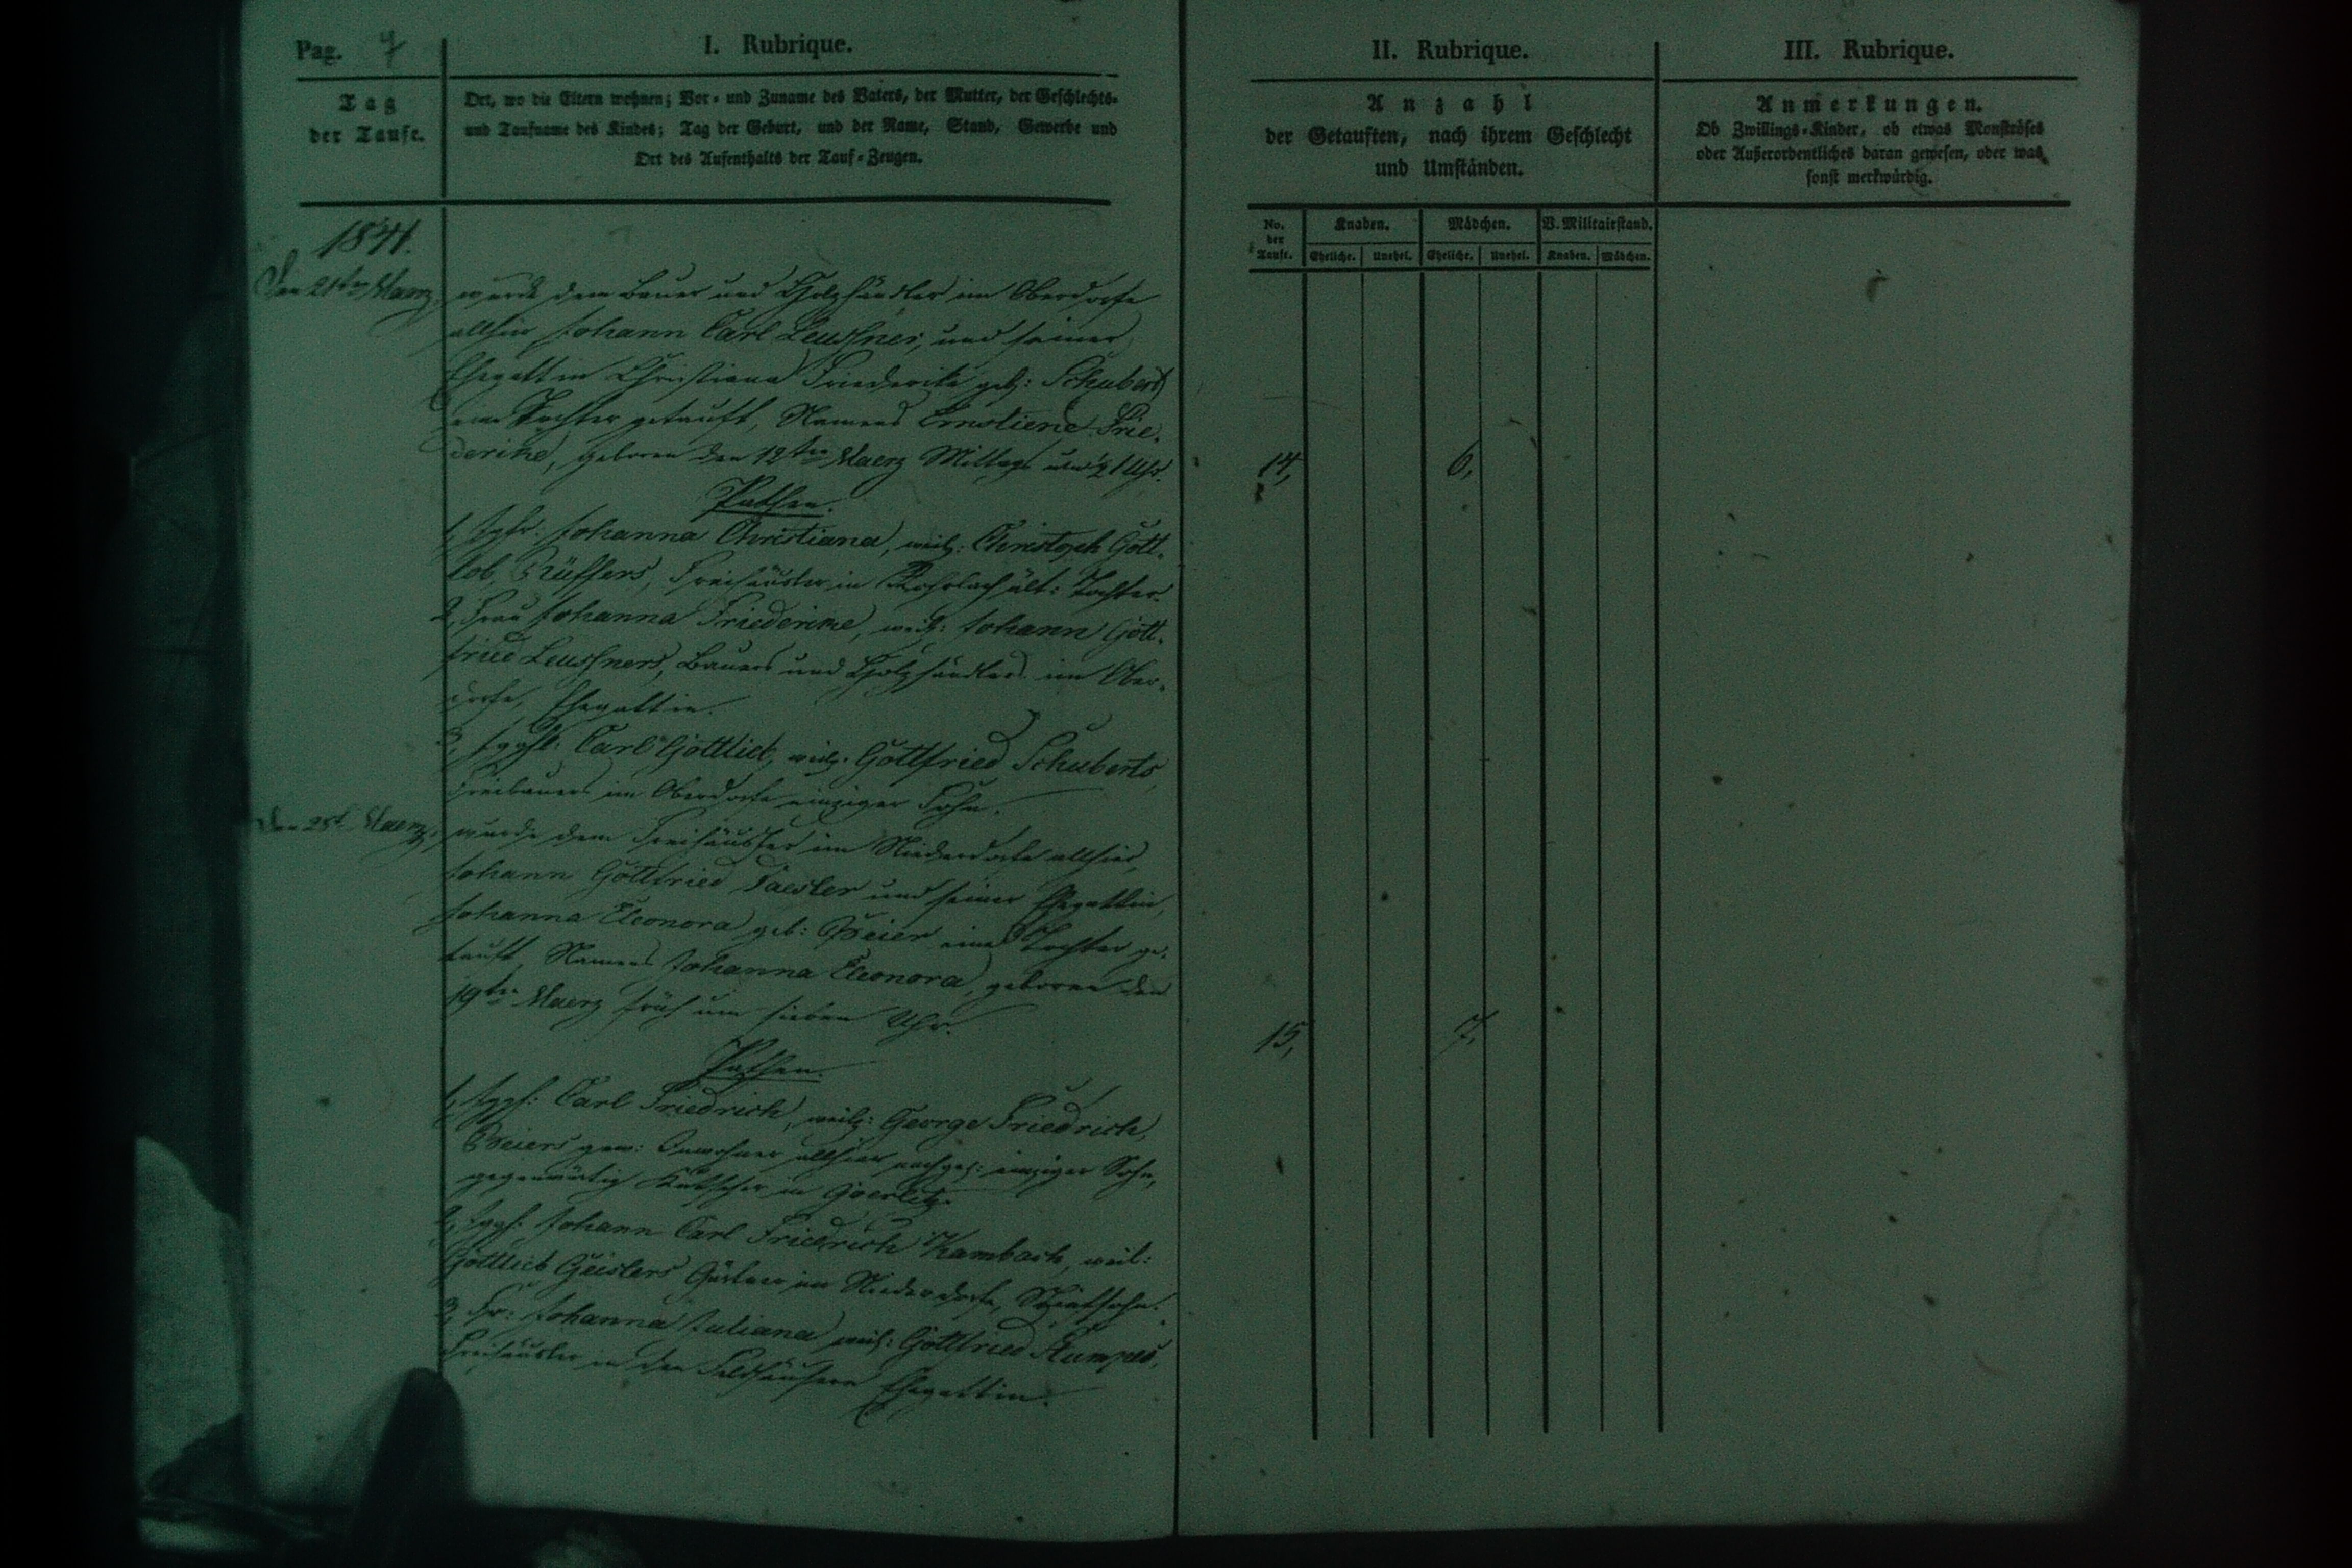 Pag. 7
I. Rubrique.
Tag
der Taufe.
Ort, wo die Eltern wohnen; Vor- und Zuname des Vaters, der Mutter, der Geschlechts-
und Taufname des Kindes; Tag der Geburt, und der Name, Stand, Gewerbe und
Ort des Aufenthalts der Tauf-Zeugen.
1841.
Den 21ten Maerz,
wurde dem Bauer und Holzhändler im Oberdorfe
allhier Johann Carl Leuschner, und seiner
Ehegattin Christiana Friederike geb: Schubert
eine Tochter getauft, Namens Ernstiene Frie-
derike, geboren den 12ten Maerz Mittags um 1/2 1 Uhr.
Pathen.
1, Igfr: Johanna Christiana, weil: Christoph Gott-
lob Rüffers, Freihäusler in ält: Tochter.
2, Frau Johanna Friederike, Johann Gott-
fried Leuschners, Bauers und Holzhändlers im Ober-
dorfe, Ehegattin.
3, Iggsl: Carl Gottlieb, weil: Gottfried Schuberts,
Freibauers im Oberdorfe einziger Sohn.
Den 25t Maerz,
wurde dem Freihäusler im Niederdorfe allhier,
Johann Gottfried und seiner Ehegattin,
Johanna Eleonora geb: Beier eine Tochter ge-
tauft, Namens Johanna Eleonora, geboren den
19ten Maerz früh um sieben Uhr.
Pathen.
1, Iggs: Carl Friedrich, weil: George Friedrich,
Beiers gew: Inwohner allhier nachgel: einziger Sohn,
gegenwärtig Kutscher in Goerlitz.
2, Iggs: Johann Carl Friedrich Kambach, weil:
Gottlieb Geislers Gärtner im Niederdorfe, Stiefsohn.
3, Fr: Johanna Juliana Gottfried Stumpes,
Freihäusler in den Feldhäusern Ehegattin.
II. Rubrique.
Anzahl
der Getauften, nach ihrem Geschlecht
und Umständen.
No. der Taufe.
Knaben.
Mädchen.
V. Militairstand.
Eheliche. Unehel. Eheliche. Unehel. Knaben. Mädchen.
14, 6,
15, 7,
III. Rubrique.
Anmerkungen.
Ob Zwillings-Kinder, ob etwas Monströses
oder Außerordentliches daran gewesen, oder was
sonst merkwürdig.